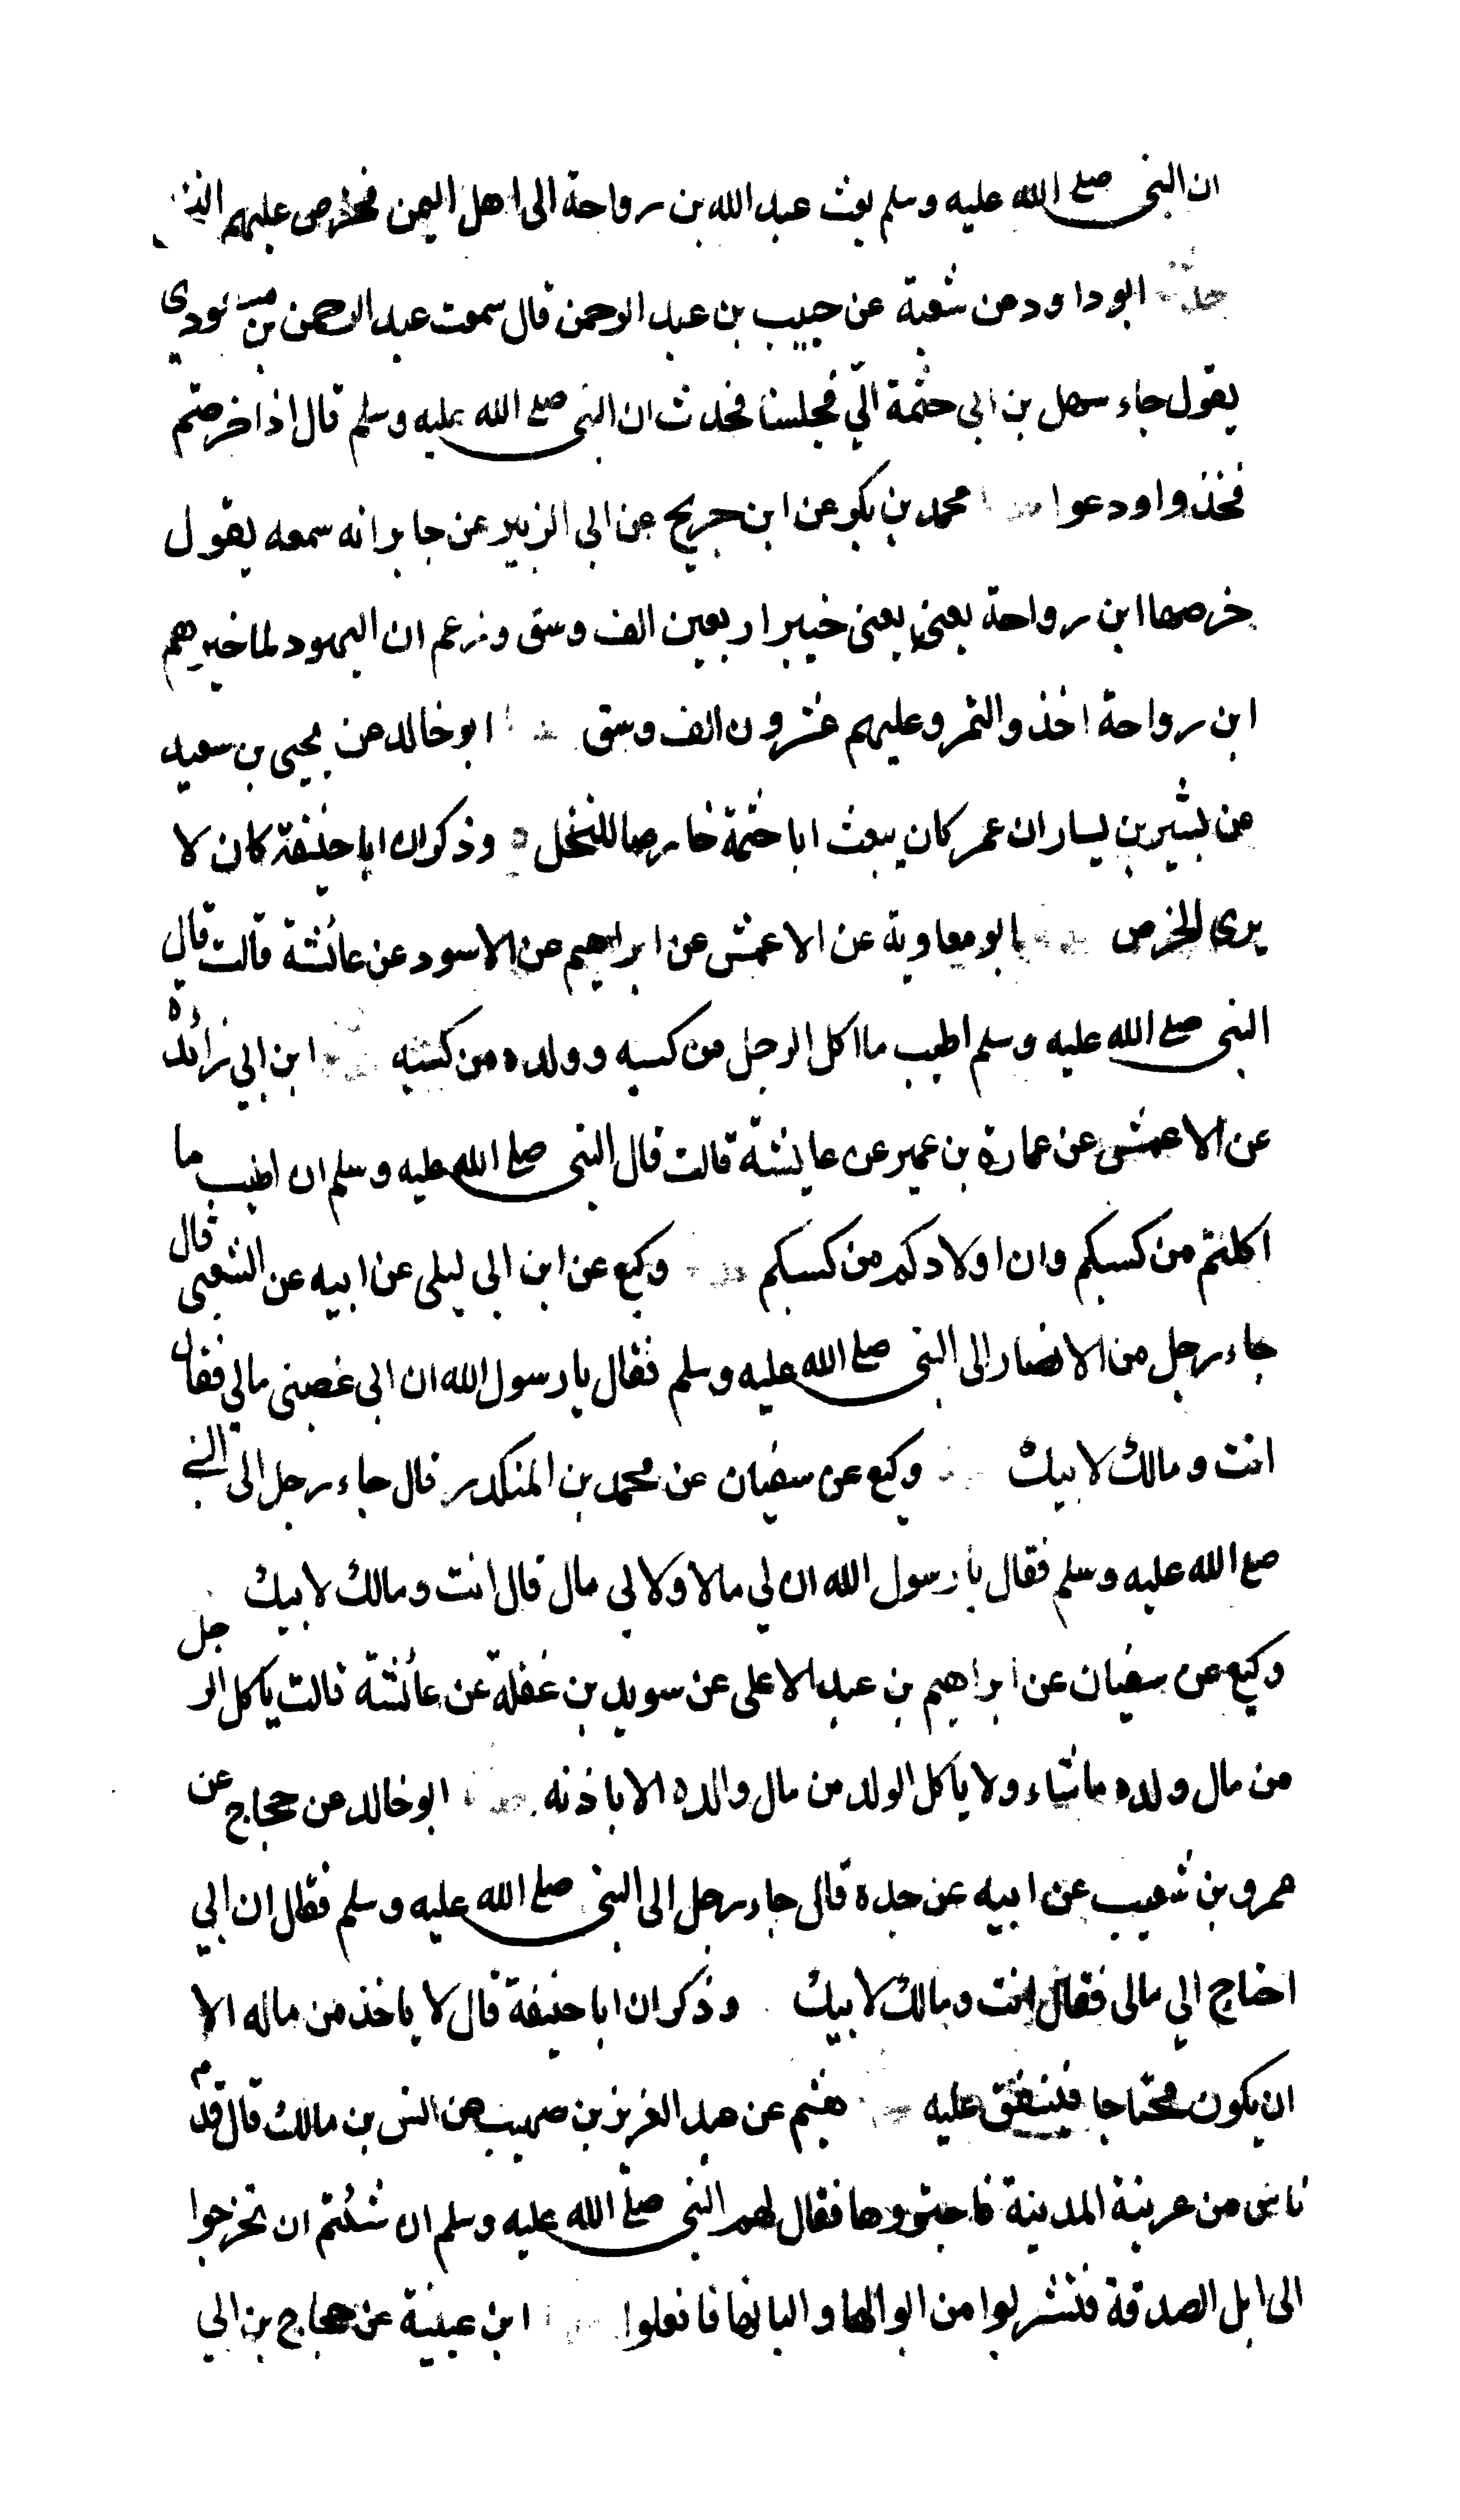 ان النبى صلے الله عليه وسلم بعث عبد الله بن رواحة الى اهل اليمن فخرص عليهم
ابو داود عن شعبة عن حبيب بن عبد الرحمن قال سمعت عبد الرحمن بن
يقول جاء سهل بن ابى حثمة الي فجلسنا فحدث ان النبى صلے الله عليه وسلم قال اذا خرصتم
فخذوا ودعوا محمد بن بكر عن ابن جريج عن ابى الزبير عن جابر انه سمعه يقول
خرصها ابن رواحة يعنى يعنى خيبر اربعين الف وسق وزعم ان اليهود لما خيرهم
ابن رواحة اخذوا التمر وعليهم عشرون الف وسق ابو خالد عن يحيى بن سعيد
عن بشير بن يسار ان عمر كان يبعث ابا خثمة خارصا للنخل وذكر ان ابا حنيفة كان لا
يرى الخرص ابو معاوية عن الاعمش عن ابراهيم عن الاسود عن عائشة قالت قال
النبى صلے الله عليه وسلم اطيب ما اكل الرجل من كسبه وولده من كسبه ابن ابي زائدة
عن الاعمش عن عمارة بن عمير عن عايشة قالت قال النبى صلے الله عليه وسلم ان اطيب ما
اكلتم من كسبكم وان اولادكم من كسبكم وكيع عن ابن ابى ليلى عن ابيه عن الشعبى قال
جاء رجل من الانصار الى النبى صلے الله عليه وسلم فقال يا رسول الله ان ابى غصبنى مالي فقال
انت ومالك لابيك وكيع عن سفيان عن محمد بن المنكدر قال جاء رجل الى النبے
صلے الله عليه وسلم فقال يا رسول الله ان لي مالا ولابى مال قال انت ومالك لابيك
وكيع عن سفيان عن ابراهيم بن عبد الاعلى عن سويد بن غفلة عن عائشة قالت ياكل الرجل
من مال ولده ما شاء ولا ياكل الولد من مال والده الا باذنه ابو خالد عن حجاج عن
عمرو بن شعيب عن ابيه عن جده قال جاء رجل الى النبى صلے الله عليه وسلم فقال ان ابي
احتاج الي مالى فقال انت ومالك لابيك وذكر ان ابا حنيفة قال لا ياخذ من ماله الا
ان يكون محتاجا فينفق عليه هشيم عن عبد العزيز بن صهيب عن انس بن مالك قال قدم
ناس من عرينة المدينة فاجتووها فقال لهم النبى صلے الله عليه وسلم ان شئتم ان تخرجوا
الى ابل الصدقة فتشربوا من ابوالها والبانها فافعلوا ابن عيينة عن حجاج بن ابي